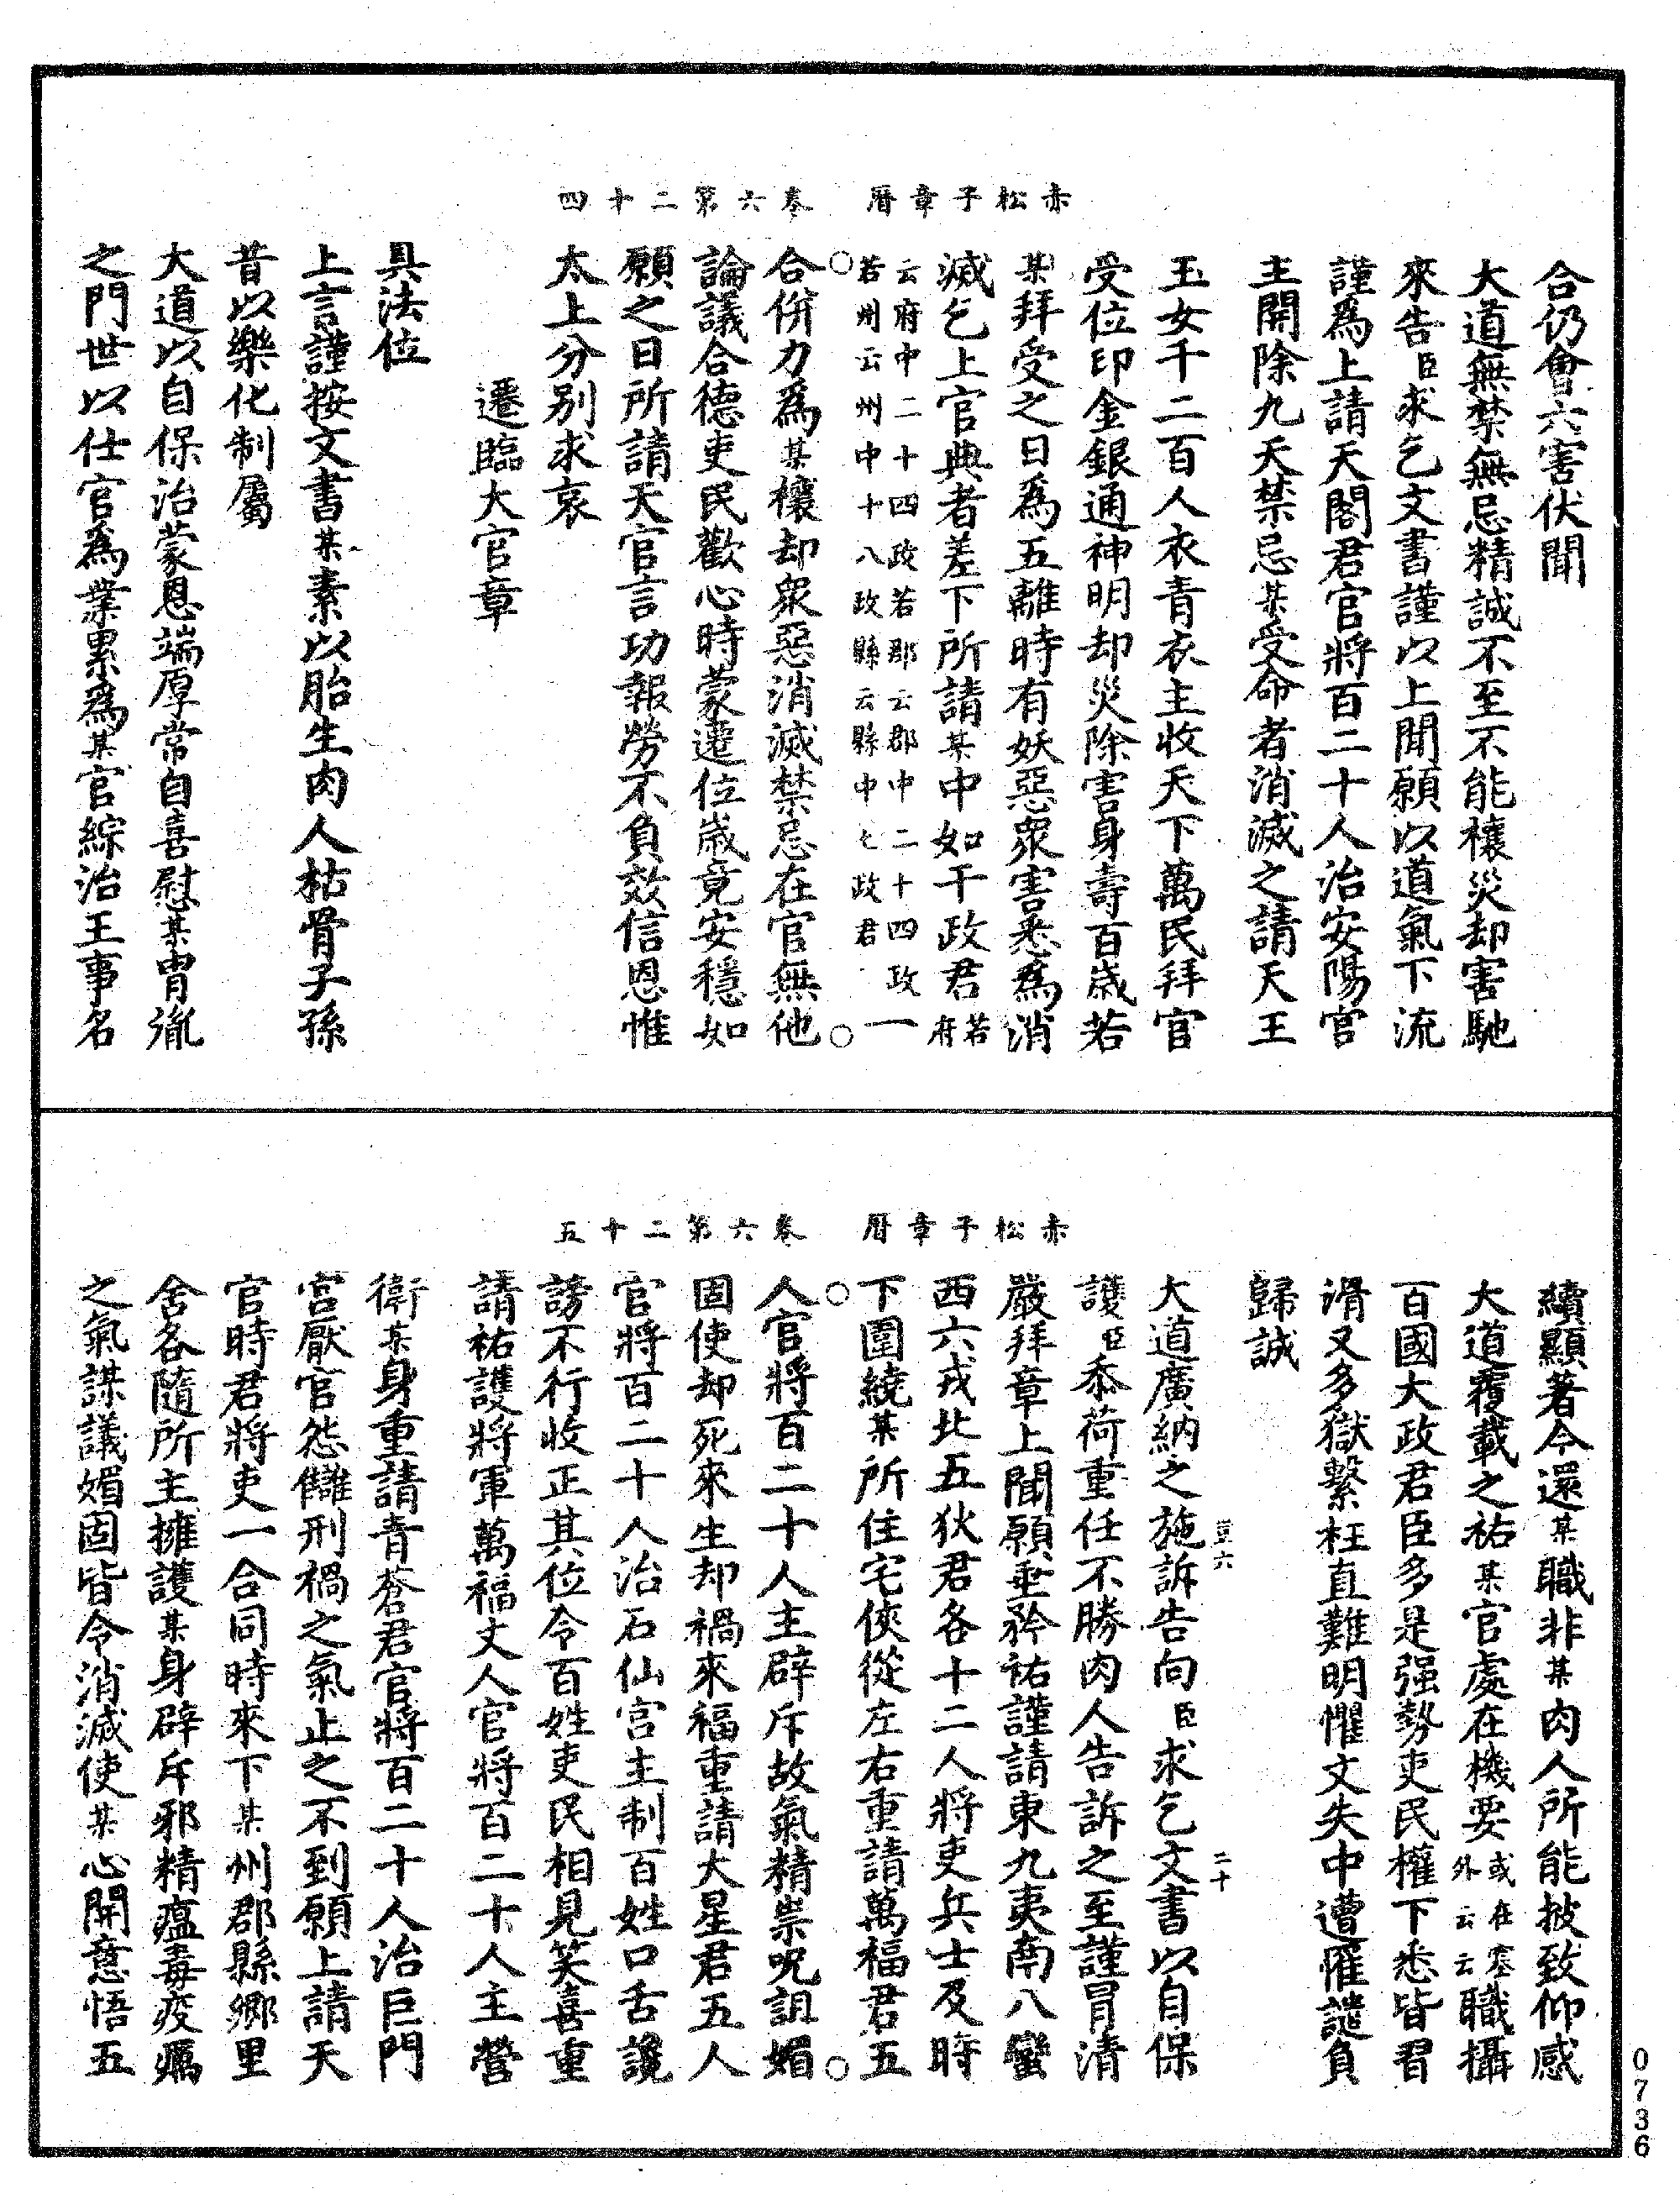 赤松子章曆　卷六第二十四
合仍會六害伏聞
大道無禁無忌精誠不至不能禳災却害馳
來告臣求乞文書謹以上聞願以道氣下流
謹爲上請天閣君官將百二十人治安陽宮
主開除九天禁忌某受命者消滅之請天王
玉女千二百人衣青衣主收天下萬民拜官
受位印金銀通神明却災除害身壽百歲若
某拜受之日爲五離時有妖惡衆害悉爲消
滅乞上官典者差下所請某中如干政君若府
云府中二十四政若郡云郡中二十四政一
若州云州中十八政縣云縣中七政君
合併力爲某禳却衆惡消滅禁忌在官無他
論議合德吏民歡心時蒙遷位歲竟安穩如
願之日所請天官言功報勞不負效信恩惟
太上分別求哀
遷臨大官章
具法位
上言謹按文書某素以胎生肉人枯骨子孫
昔以樂化制屬
大道以自保治蒙恩端厚常自喜慰某胄胤
之門世以仕官爲業累爲某官綜治王事名
赤松子章曆　卷六第二十五
續顯著今還某職非某肉人所能披致仰感
大道覆載之祐某官處在機要或在塞外云云職攝
百國大政君臣多是强勢吏民權下悉皆君
滑又多獄繫枉直難明懼文失中遭罹譴負
歸誠
大道廣納之施訴告向臣求乞文書以自保
護臣忝荷重任不勝肉人告訴之至謹冒清
嚴拜章上聞願垂矜祐謹請東九夷南八蠻
西六戎北五狄君各十二人將吏兵士及時
下圍繞某所住宅俠從左右重請萬福君五
人官將百二十人主辟斥故氣精祟呪詛媚
固使却死來生却禍來福重請大星君五人
官將百二十人治石仙宮主制百姓口舌讒
謗不行收正其位令百姓吏民相見笑喜重
請祐護將軍萬福丈人官將百二十人主營
衛某身重請青蒼君官將百二十人治巨門
宮厭官怨讎刑禍之氣止之不到願上請天
官時君將吏一合同時來下某州郡縣鄉里
舍各隨所主擁護某身辟斥邪精瘟毒疫癘
之氣謀議媚固皆令消滅使某心開意悟五
豈六
二十
0736